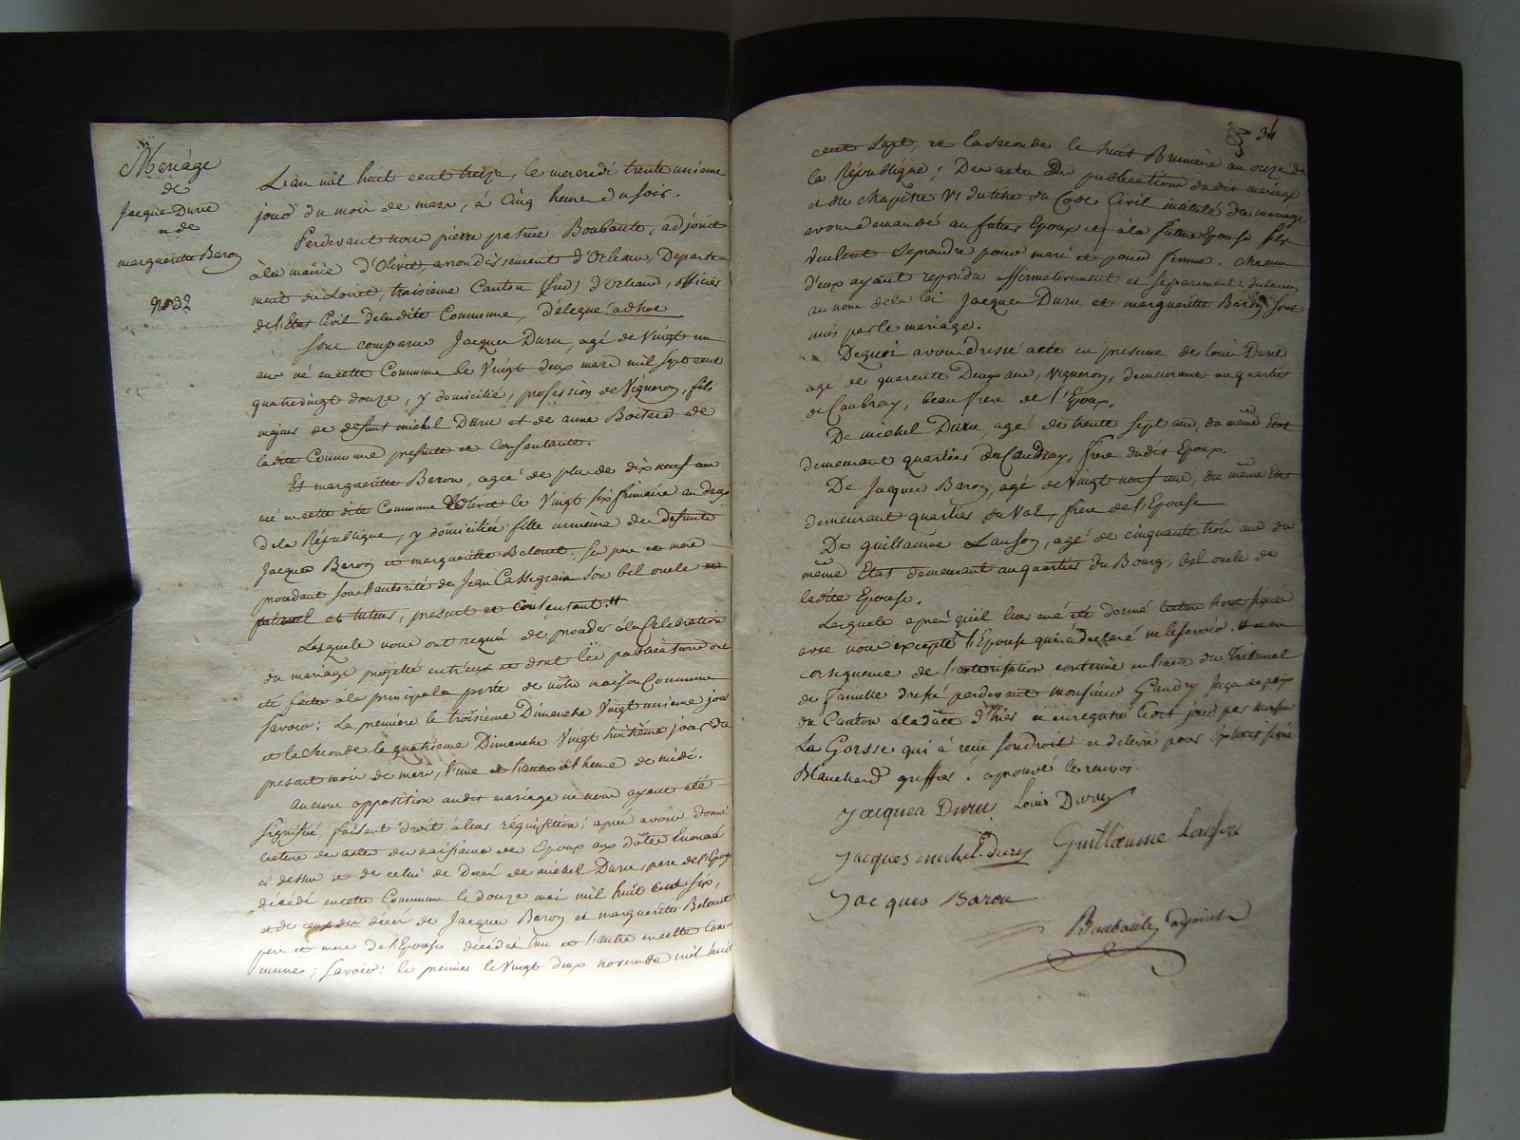 Mariage
de
Jacque Duru
et de
margueritte Baron
L'an mil huit cent treize, le mercredi trente unieme
jour du mois de mars, à cinq heure du soir.
Perdevant nous pierre patrice Boubault, adjoint
à la mairie d'Olivet, arrondissement d'Orléans, Departe-
ment du Loiret, troisième Canton (sud) d'Orleans, officier
de l'Etat Civil de ladite Commune, délegué ad hoc
sont comparu Jacque Duru, agé de Vingt un
ans né en cette Commune le Vingt deux mars mil sept cent
quatrevingt douze, y domicilié, profession de Vigneron, fils
majeur de defunt michel Duru et de anne Boitard de
ladite Commune presente et consentante.
Et margueritte Baron, agée de plus de dix neuf ans
né en cette dite Commune d'Olivet le Vingt six frimaire an deux
de la République, y domiciliée, fille mineure de defunts
Jacque Baron et margueritte Belouet, ses pere et mere
procedant sous l'autorité de Jean Cassegrain son bel oncle
paternel et tuteur, present et consentant.
Lesquels nous ont requis de proceder à la Celebration
du mariage projetté entr'eux et dont les publications ont
été faite à la principale porte de notre maison Commune
savoir: La premiere le troisieme Dimanche Vingt unieme jour
et la seconde le quatrieme Dimanche Vingt huitième jour du
present mois de mars, l'une et l'autre à l'heure de midi.
Aucune opposition audit mariage ne nous ayant été
signifié, faisant droit à leur réquisition; après avoir donné
lecture des actes de naissance des Epoux aux dates Enoncé
ci dessus et de celui de décès de michel Duru, pere de l'Epoux
décédé en cette Commune le douze mai mil huit cent six,
et de ceux de décès de Jacque Baron et margueritte Belouet
pere et mere de l'Epouse décédés l'un et l'autre en cette Com-
mune; savoir: le premier le Vingt deux novembre mil huit
34
cent sept, et la seconde le huit Brumaire an onze de
la République; Des actes de publications dudit mariage
et du chapitre VI du titre du Code Civil intitulé du mariage
avons demandé au futur Epoux et à la future Epouse s'ils
veulent se prendre pour mari et pour femme. chacun
d'eux ayant repondu affirmativement et separement; declarons
au nom de la loi Jacque Duru et margueritte Baron sont
unis par le mariage.
De quoi avons dressé acte en presence de Louis Duru
agé de quarante Deux ans, vigneron, demeurant au quartier
du Caubray, beau frere de l'Epoux.
De michel Duru, agé de trente sept ans, du même Etat
demeurant quartier du Caubray, frere dudit Epoux.
De Jacque Baron, agé de Vingt neuf ans, du même Etat
demeurant quartier du Val, frere de l'Epouse
De guillaume Lanson, agé de cinquante trois ans du
même Etat demeurant au quartier du Bourg, bel oncle de
ladite Epouse.
Lesquels après qu'il leur a été donné lecture l'ont signé
avec nous excepté l'Epouse qui a declaré ne le savoir.
consequence de l'autorisation contenue
de famille dressé pardevant monsieur Gaudry juge de paix
du Canton à la date d'hier et enregistré ledit jour par
La Gorsse qui a reçu son droit et delivré pour Expedition signé
Blanchard greffier. aprouvé le renvoi
Jacques Duru Louis Duru
Jacques michel Duru Guillaume Lanson
Jacques Baron
Boubault adjoint